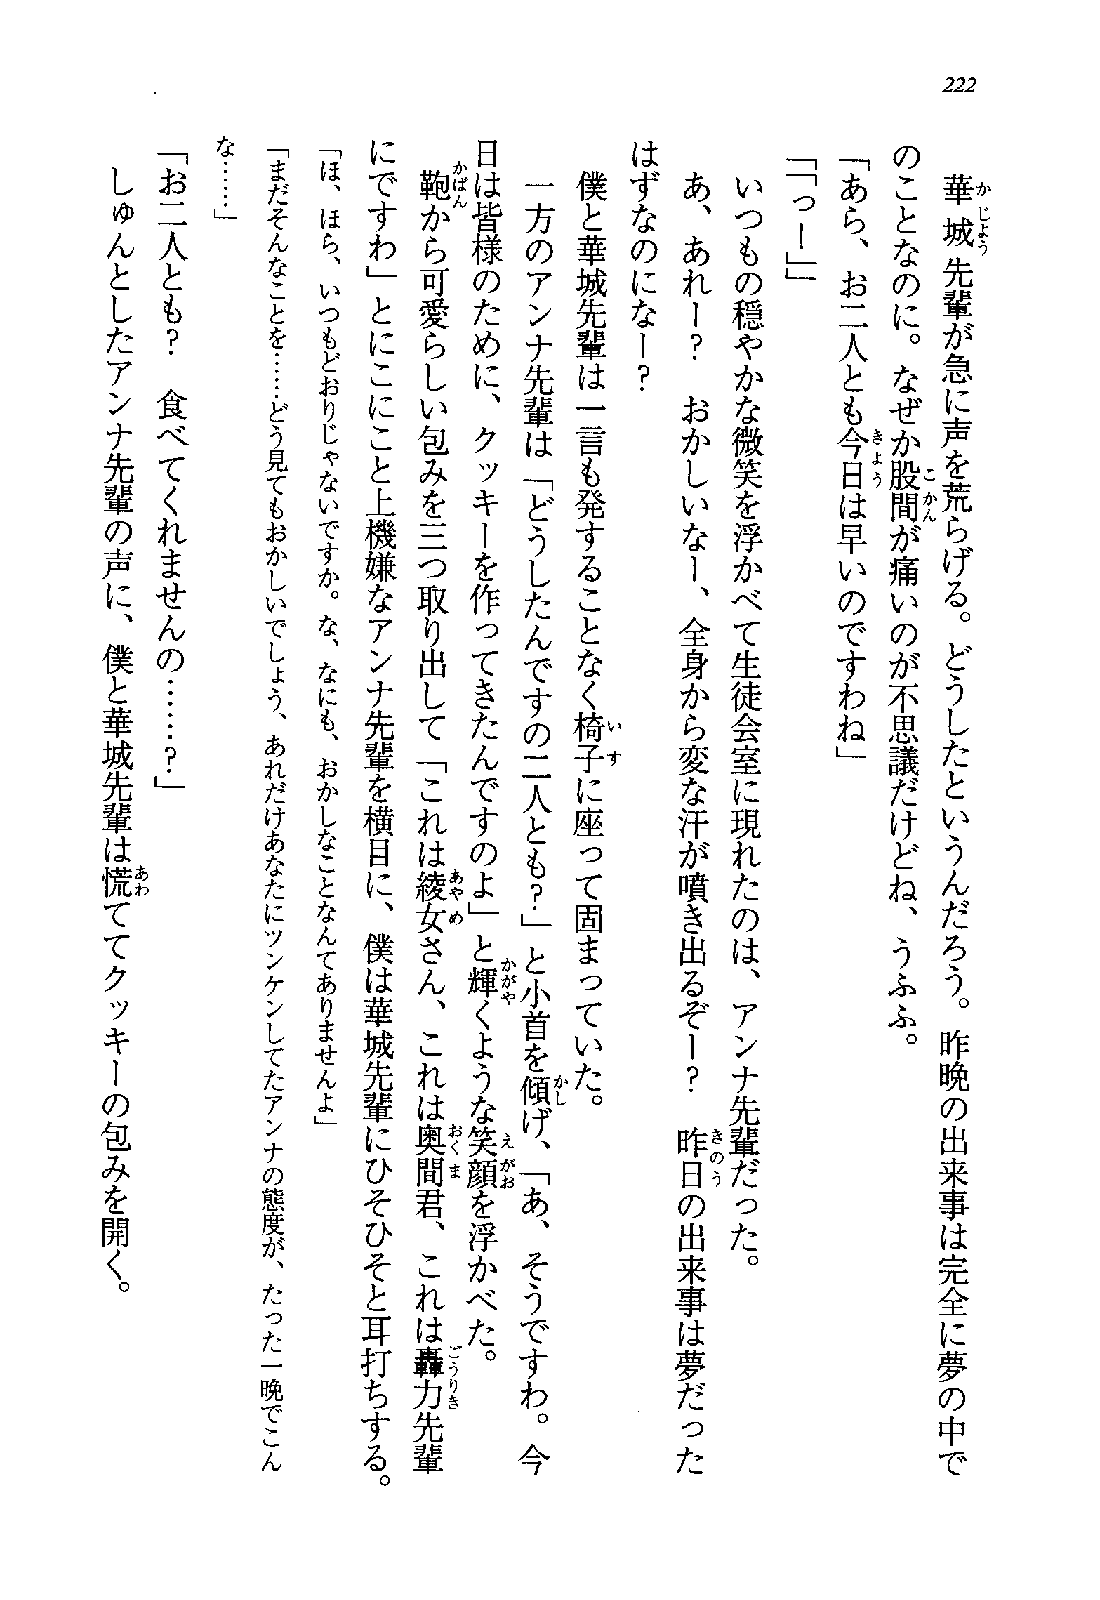 222
華城先輩が急に声を荒らげる。どうしたというんだろう。昨晩の出来事は完全に夢の中で
のことなのに。なぜか股間が痛いのが不思議だけどね、うふふ。
「あら、お二人とも今日は早いのですわね」
「「っー」」
いつもの穏やかな微笑を浮かべて生徒会室に現れたのは、アンナ先輩だった。
あ、あれー？　おかしいなー、全身から変な汗が噴き出るぞー？　昨日の出来事は夢だった
はずなのになー？
僕と華城先輩は一言も発することなく椅子に座って固まっていた。
一方のアンナ先輩は「どうしたんですの二人とも？」と小首を傾げ、「あ、そうですわ。今
日は皆様のために、クッキーを作ってきたんですのよ」と輝くような笑顔を浮かべた。
鞄から可愛らしい包みを三つ取り出して「これは綾女さん、これは奥間君、これは轟力先輩
にですわ」とにこにこと上機嫌なアンナ先輩を横目に、僕は華城先輩にひそひそと耳打ちする。
「ほ、ほら、いつもどおりじゃないですか。な、なにも、おかしなことなんてありませんよ」
「まだそんなことを……どう見てもおかしいでしょう、あれだけあなたにツンケンしてたアンナの態度が、たった一晩でこん
な……」
「お二人とも？　食べてくれませんの……？」
しゅんとしたアンナ先輩の声に、僕と華城先輩は慌ててクッキーの包みを開く。